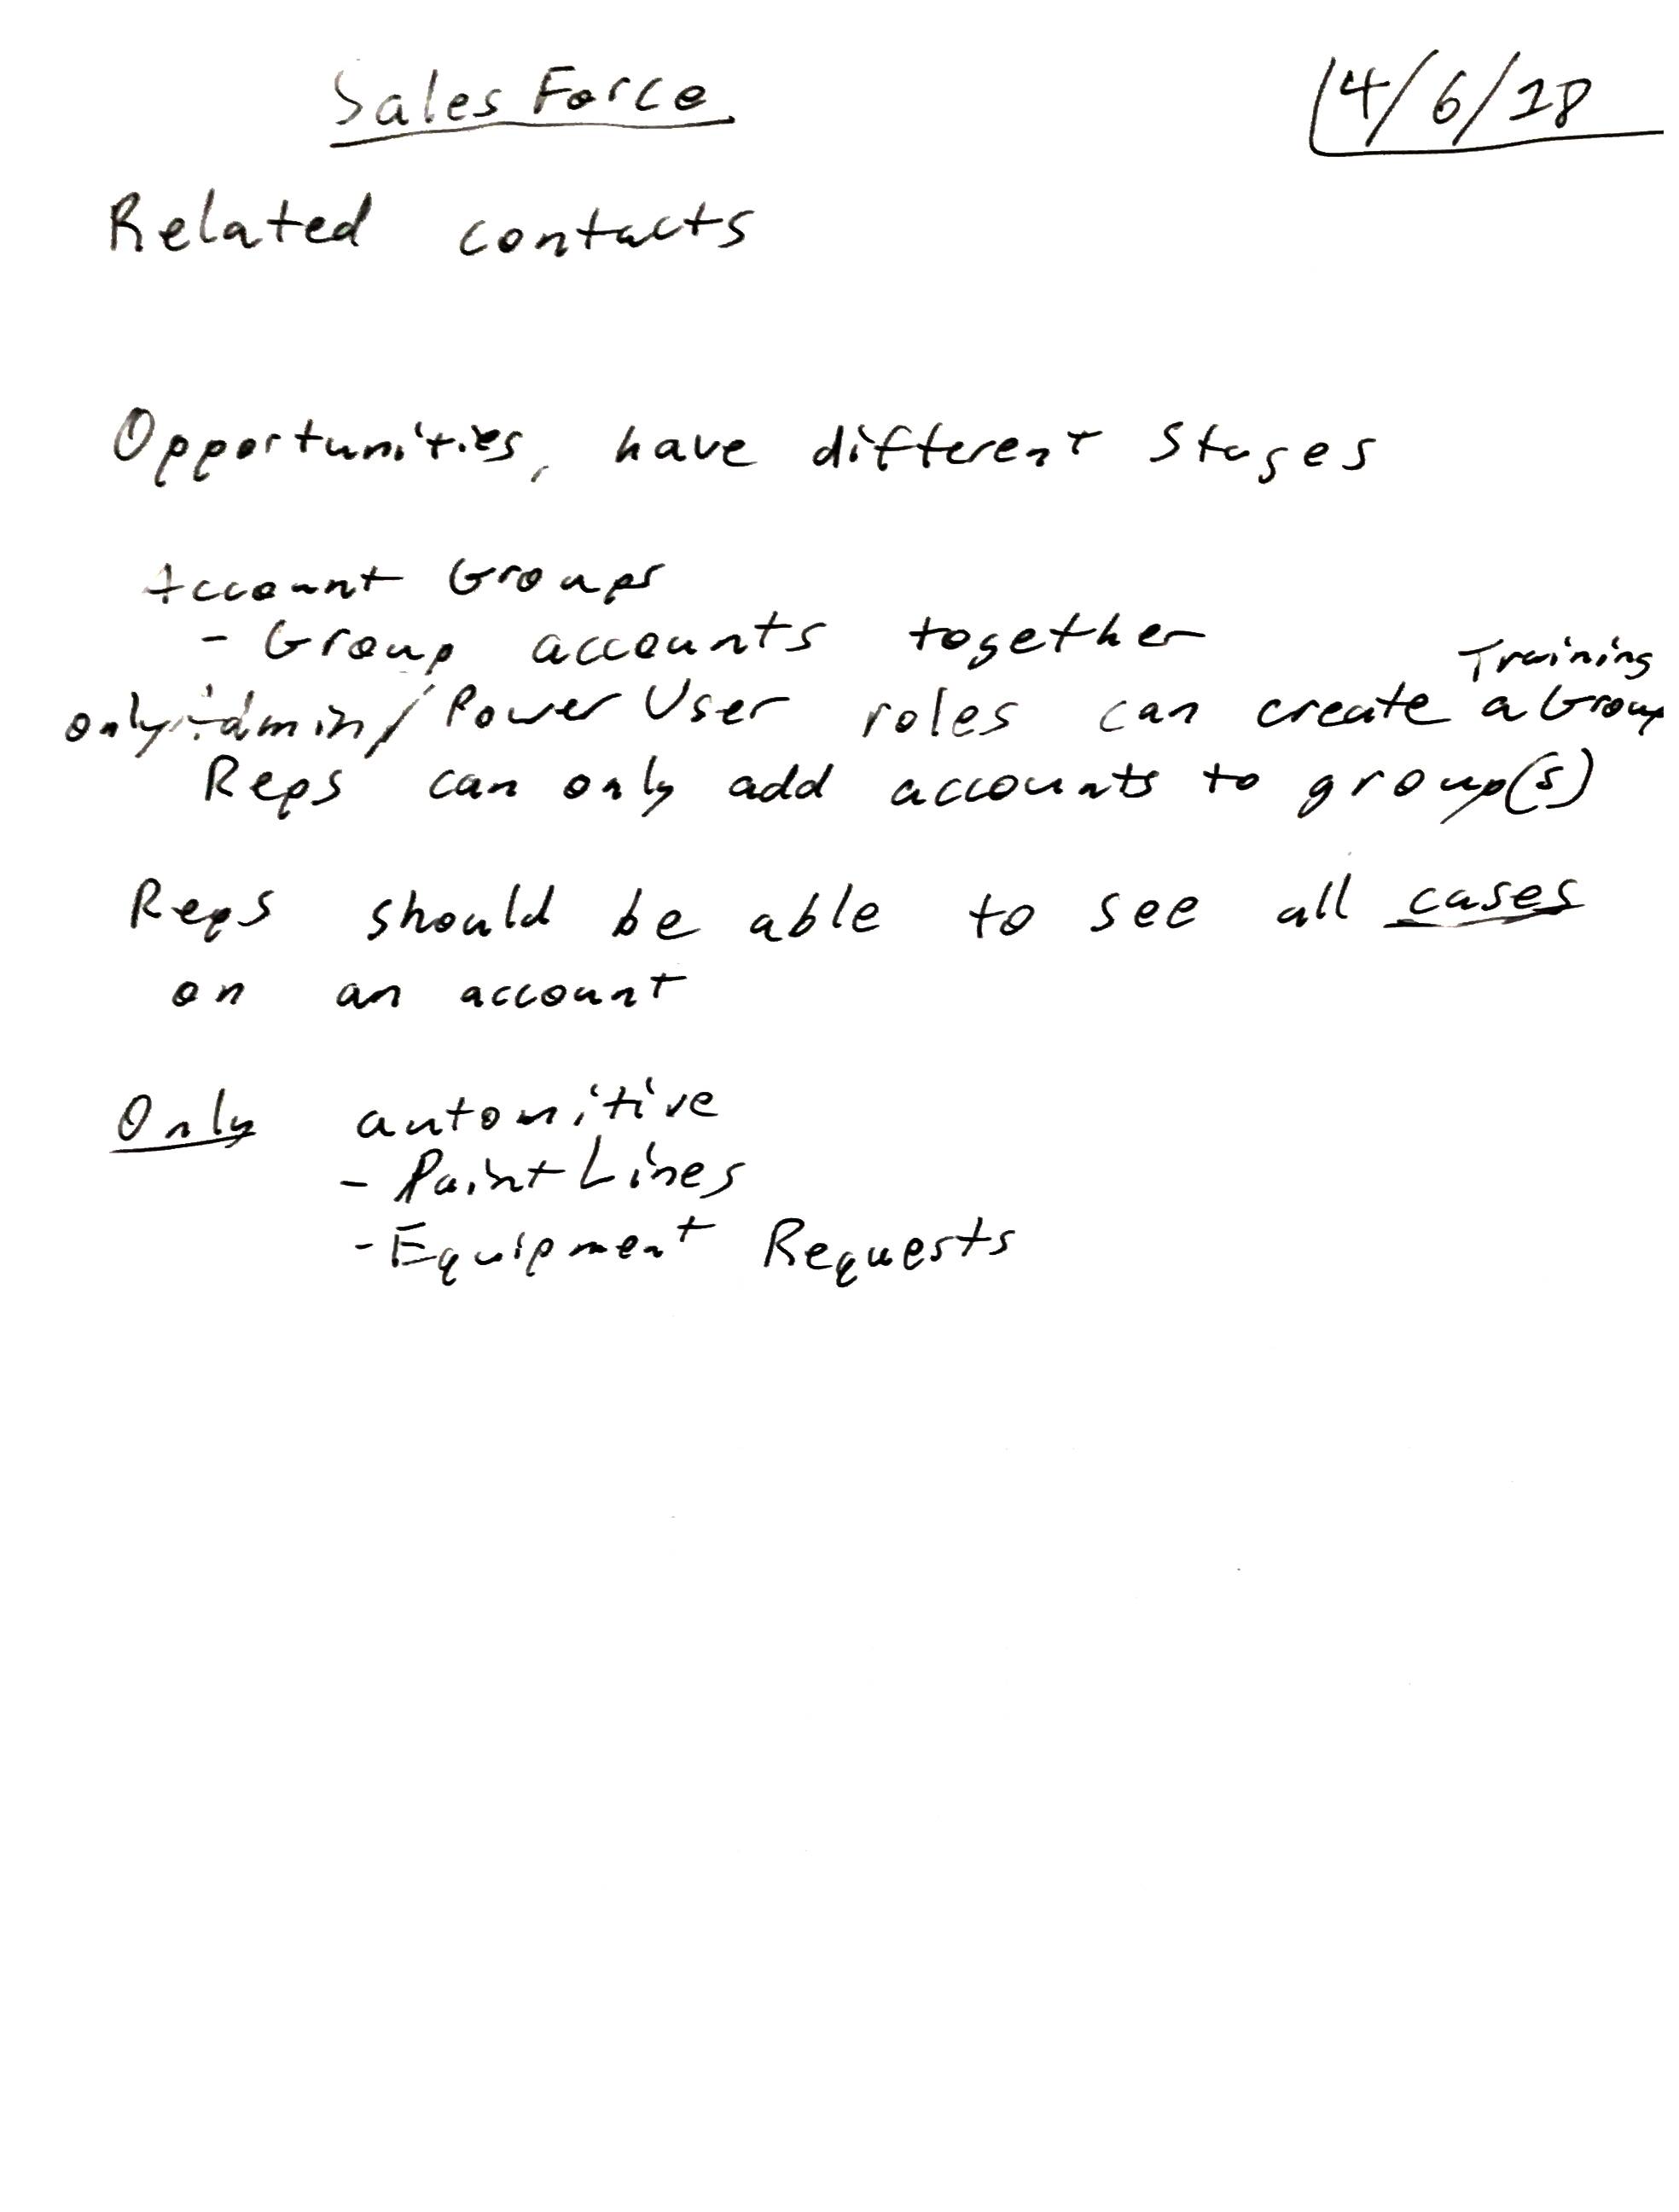 Sales Force
4/6/18
Related contacts
Opportunities, have different stages
Account Groups
- Group accounts together
Training
only admin/Power User roles can create a Group
Reps can only add accounts to group(s)
Reps should be able to see all cases
on an account
Only automitive
- Paint Lines
- Equipment Requests